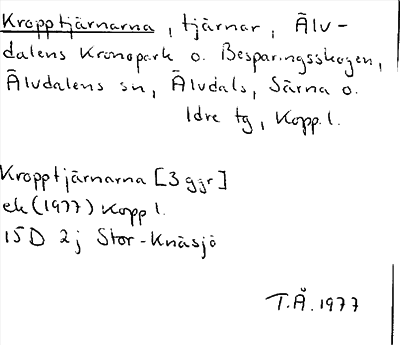 Kropptjärnarna, tjärnar, Älv-
dalens Kronopark o. Besparingsskogen,
Älvdalens sn, Älvdals, Särna o.
Idre tg, Kopp.l.
Kropptjärnarna [3 ggr]
ek (1977) Kopp l.
15D 2j Stor-Knäsjö
T.Å. 1977